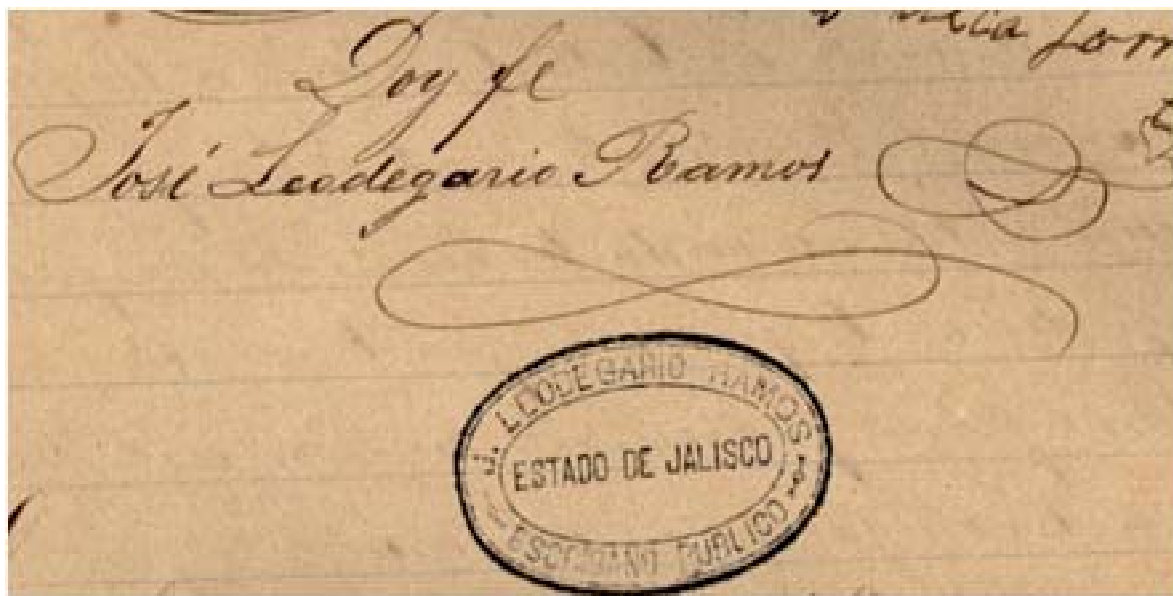 Doy fe
José Leodegario Ramos
J. LEODEGARIO RAMOS
ESTADO DE JALISCO
ESCRIBANO PUBLICO